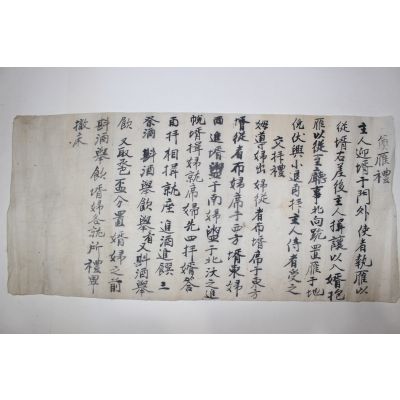 奠雁禮
主人迎壻于門外使者執雁以
從壻右在後主人揖讓以入壻抱
雁以從主廳事北向跪置雁于地
俛伏興小退再拜主人侍者受之
交拜禮
姆導婦出婦從者布壻席于東方
壻從者布婦席于西方壻東婦
西進壻盥于南婦盥于北沃之進
帨壻揖婦就席婦先四拜壻答
再拜相揖就座進酒進饌三
祭酒斟酒舉飮無肴又斟酒舉
飮又取巹盃分置壻婦之前
斟酒舉飮壻婦各就所禮畢
撤床